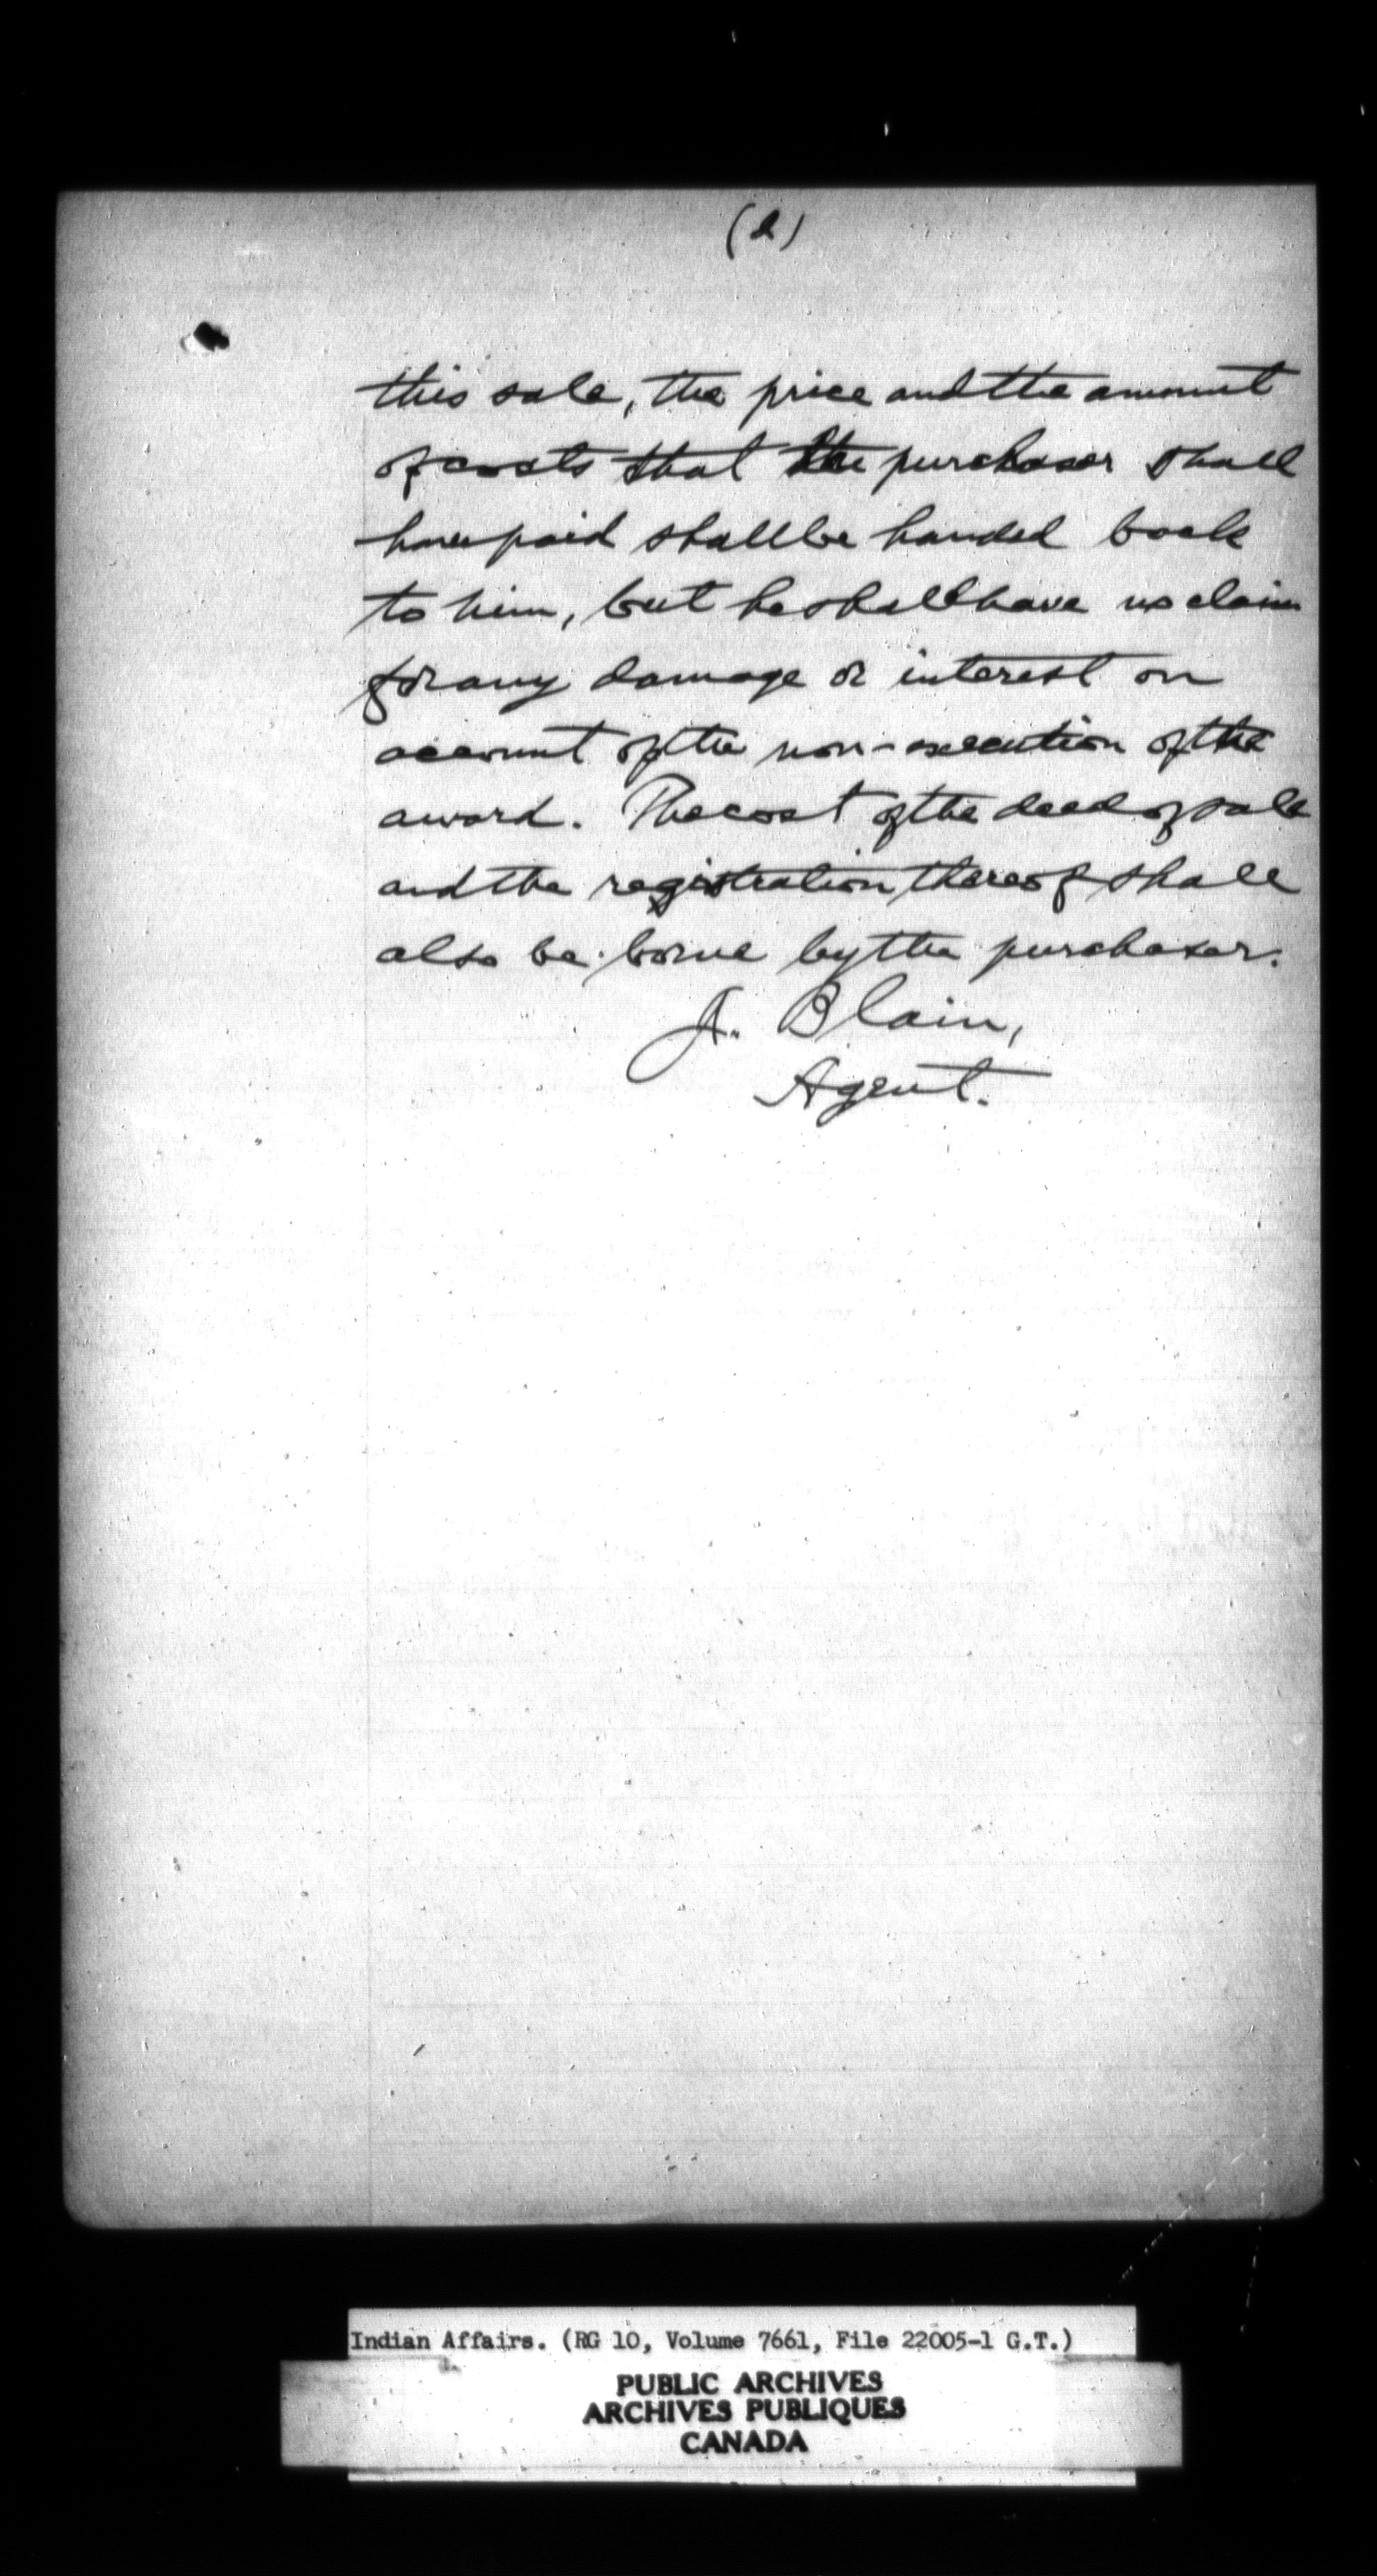 (2)
this sale, the price and the amount
of costs that the purchaser shall
have paid shall be handed back
to him, but he shall have no claim
for any damage or interest on
account of the non-execution of the
award. The cost of the deed of sale
and the registration thereof shall
also be borne by the purchaser.
A. Blain,
Agent.
Indian Affairs. (RG 10, Volume 7661, File 22005-1 G.T.)
PUBLIC ARCHIVES
ARCHIVES PUBLIQUES
CANADA